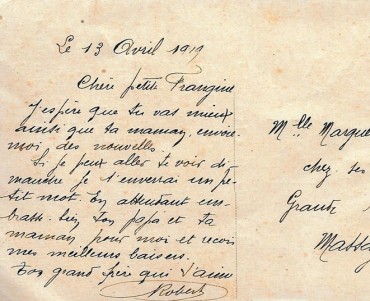 Le 13 Avril 1919
Chère petite Frangine
J'espère que tu vas mieux
ainsi que ta maman, envoie
moi des nouvelle.
Si je peux aller te voir di-
manche je t'enverrai un pe-
tit mot. En attendant em-
brasse bien ton papa et ta
maman pour moi et reçois
mes meilleurs baisers.
Ton grand frère qui t'aime
Robert
Mlle Margue
chez ses
Grande
Massa